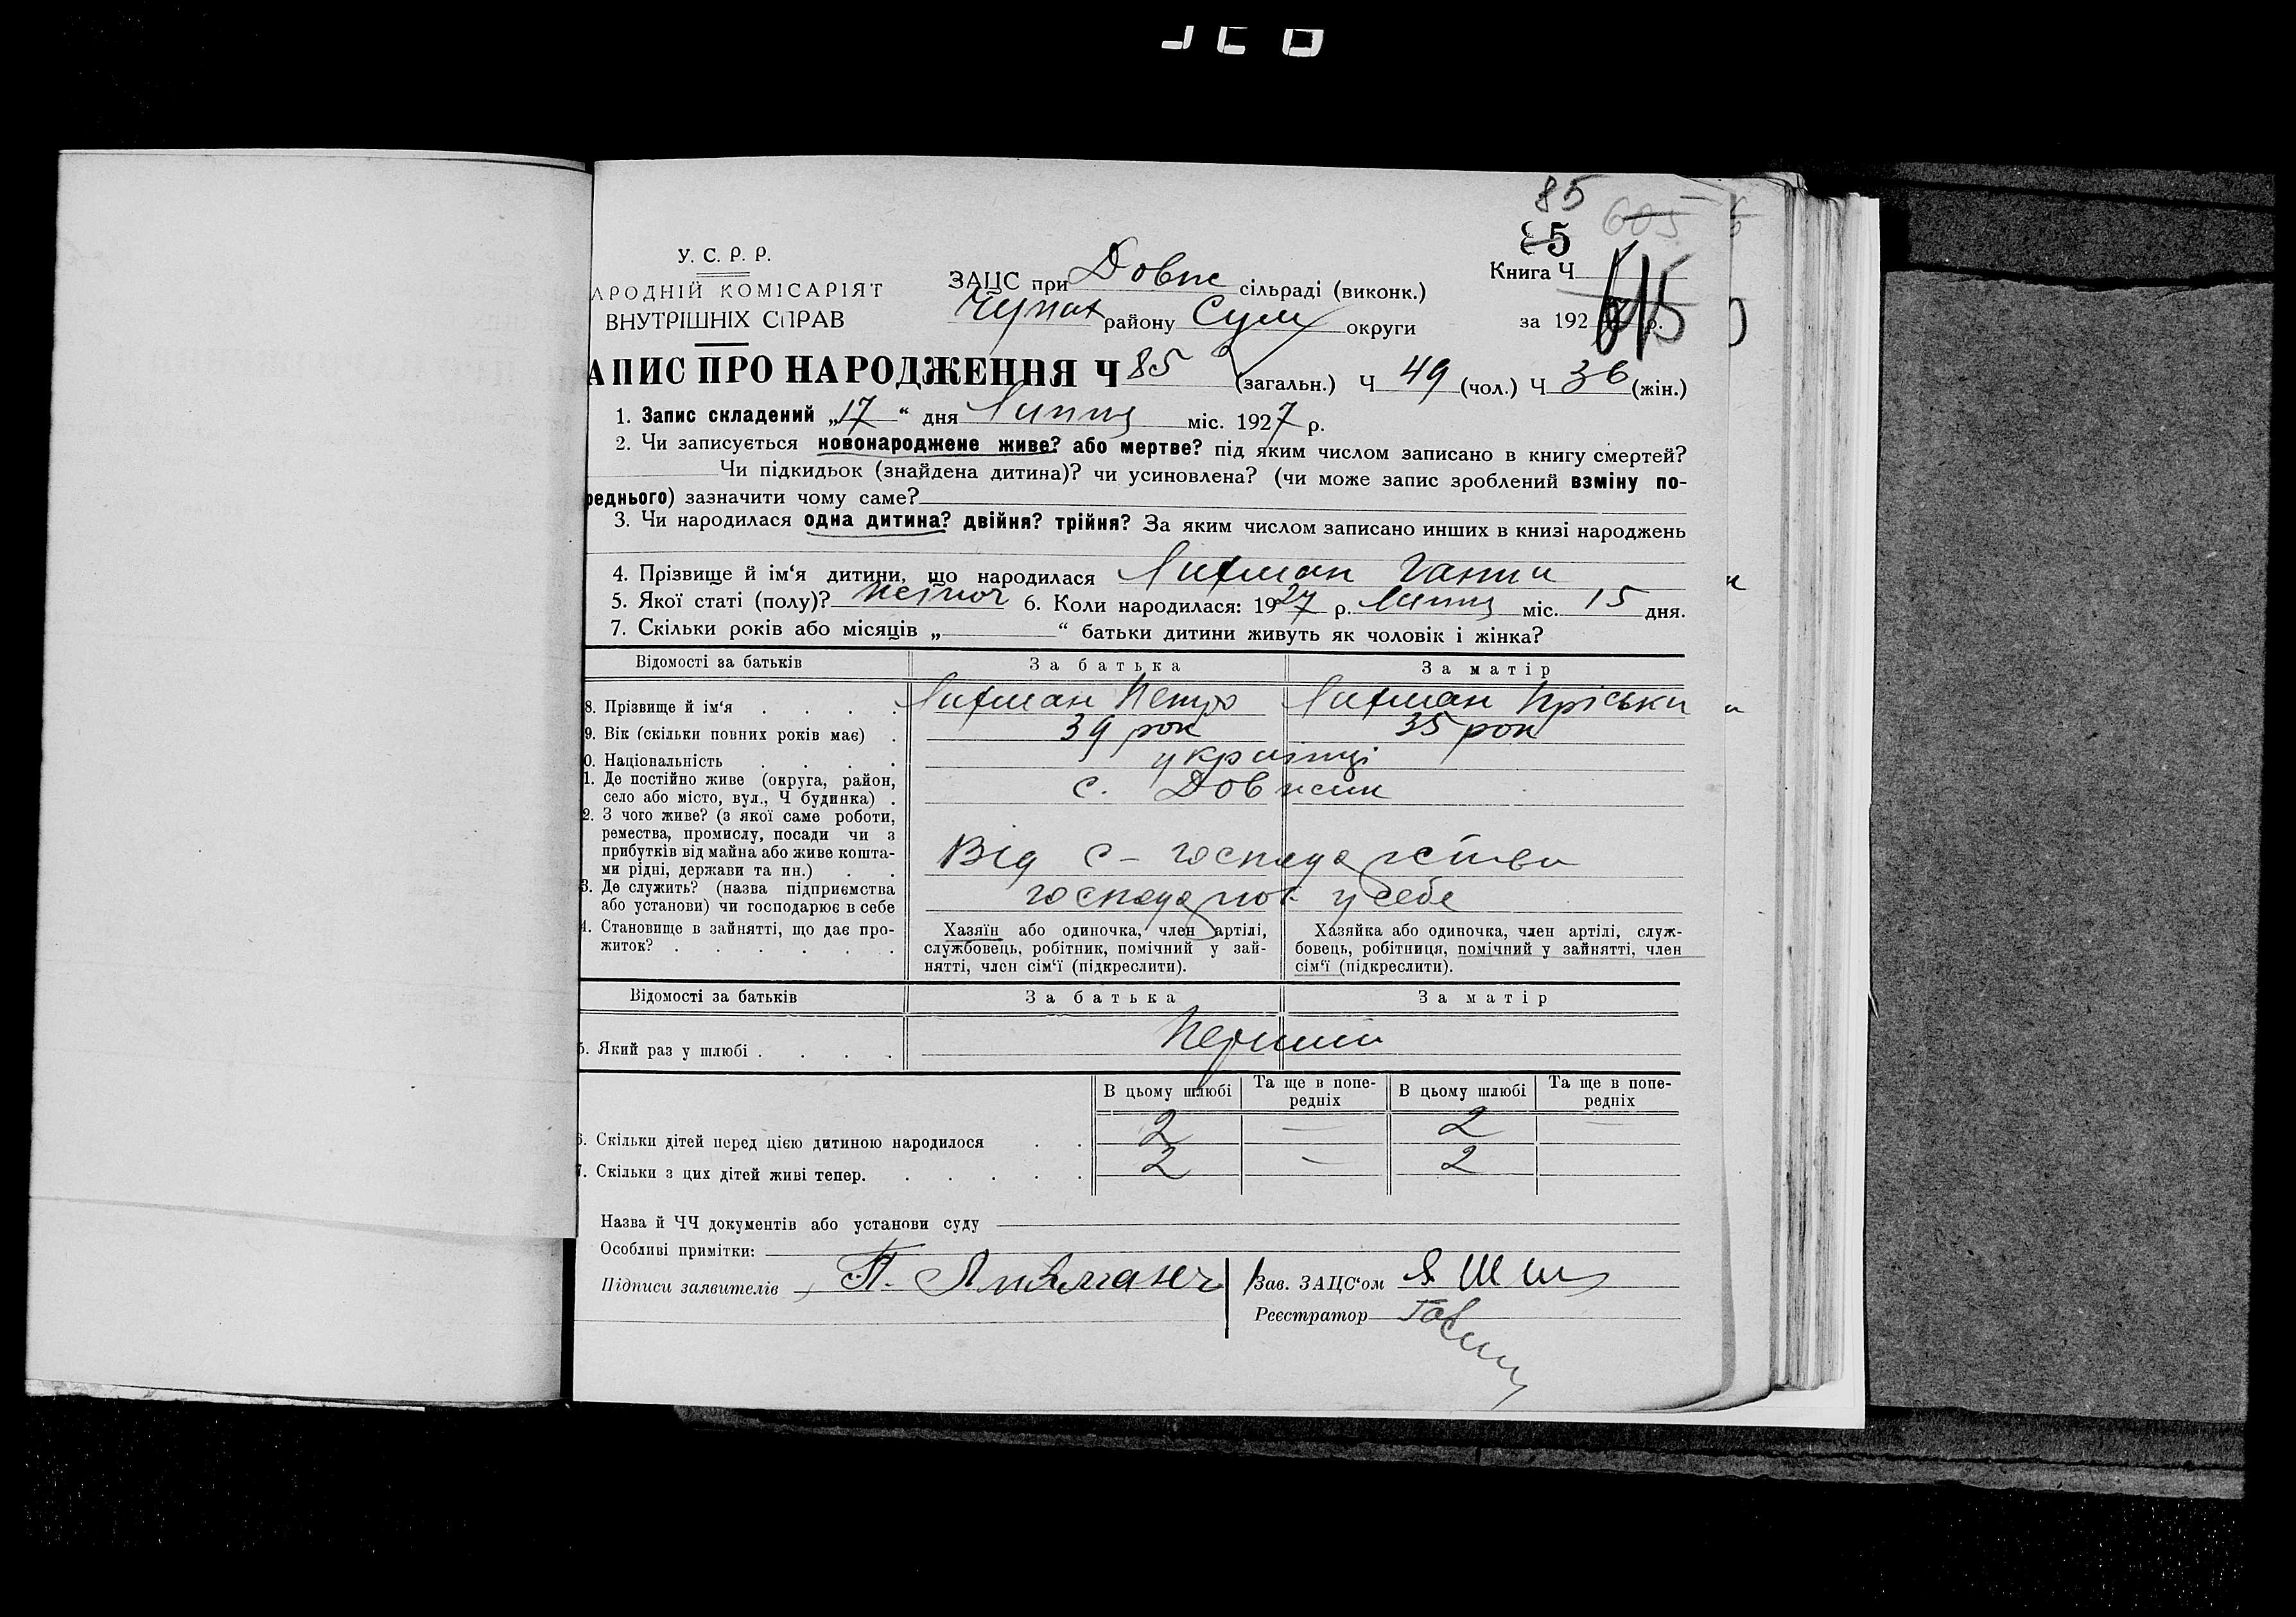 85
605
85
У. С. Р. Р.
АРОДНІЙ КОМІСАРІЯТ
ВНУТРІШНІХ СПРАВ
ЗАЦС при Довж сільраді (виконк.)
Чупах району Сум округи
Книга Ч
615
за 192 р.
АПИС ПРО НАРОДЖЕННЯ Ч 85 (загальн.) Ч 49 (чол.) Ч 36 (жін.)
1. Запис складений „17“ дня Липця міс. 1927 р.
2. Чи записується новонароджене живе? або мертве? під яким числом записано в книгу смертей?
Чи підкидьок (знайдена дитина)? чи усиновлена? (чи може запис зроблений взміну по-
реднього) зазначити чому саме?
3. Чи народилася одна дитина? двійня? трійня? За яким числом записано инших в книзі народжень
4. Прізвище й ім‘я дитини, що народилася Лихман Ганна
5. Якої статі (полу)? жіноч 6. Коли народилася: 1927 р. Липця міс. 15 дня.
7. Скільки років або місяців „ “ батьки дитини живуть як чоловік і жінка?
Відомості за батьків За батька За матір
8. Прізвище й ім‘я Лихман Петро Лихман Пріська
9. Вік (скільки повних років має) 39 рок 35 рок
0. Національність українці
1. Де постійно живе (округа, район,
село або місто, вул., Ч будинка) с. Довжик
2. З чого живе? (з якої саме роботи,
ремества, промислу, посади чи з
прибутків від майна або живе кошта-
ми рідні, держави та ин.) Від с-господарства
3. Де служить? (назва підприємства
або установи) чи господарює в себе господарює у себе
4. Становище в зайнятті, що дає про-
житок?
Хазяїн або одиночка, член артілі,
службовець, робітник, помічний у зай-
нятті, член сім‘ї (підкреслити).
Хазяйка або одиночка, член артілі, служ-
бовець, робітниця, помічний у зайнятті, член
сім‘ї (підкреслити).
Відомості за батьків За батька За матір
5. Який раз у шлюбі Перший
В цьому шлюбі Та ще в попе-
редніх В цьому шлюбі Та ще в попе-
редніх
6. Скільки дітей перед цією дитиною народилося 2 — 2 —
7. Скільки з цих дітей живі тепер. 2 — 2
Назва й ЧЧ документів або установи суду
Особливі примітки:
Підписи заявителів П. Зав. ЗАЦС‘ом
Реєстратор